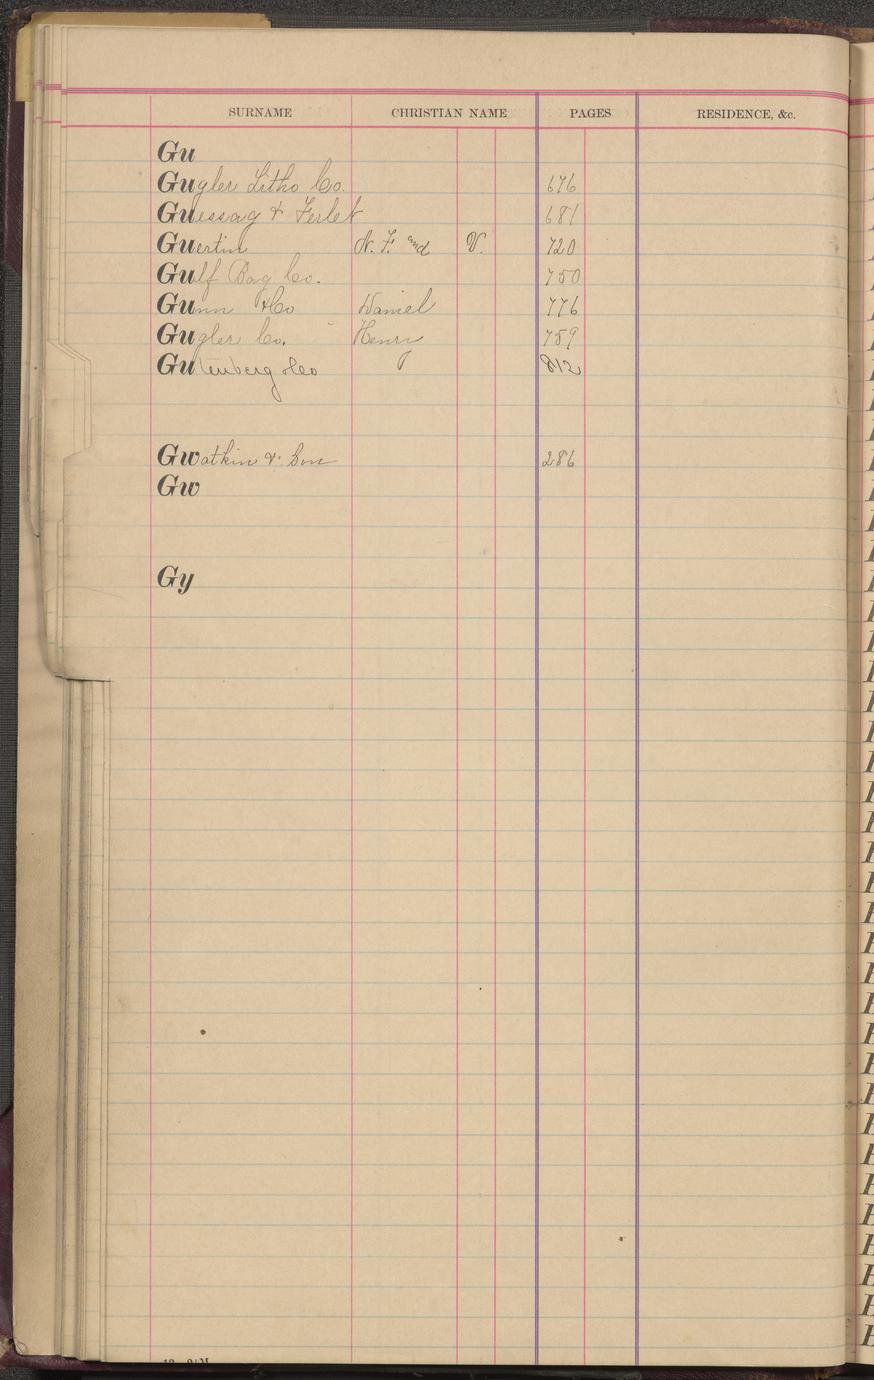 SURNAME CHRISTIAN NAME PAGES RESIDENCE, &c.
Gu
Gugler Litho Co. 676
Guessag & Ferlet 681
Guertin N. F. and V. 720
Gulf Bag Co. 750
Gunn &Co Daniel 776
Gugler Co. Henry 759
Gutenberg &Co 812
Gwatkin & Son 286
Gw
Gy